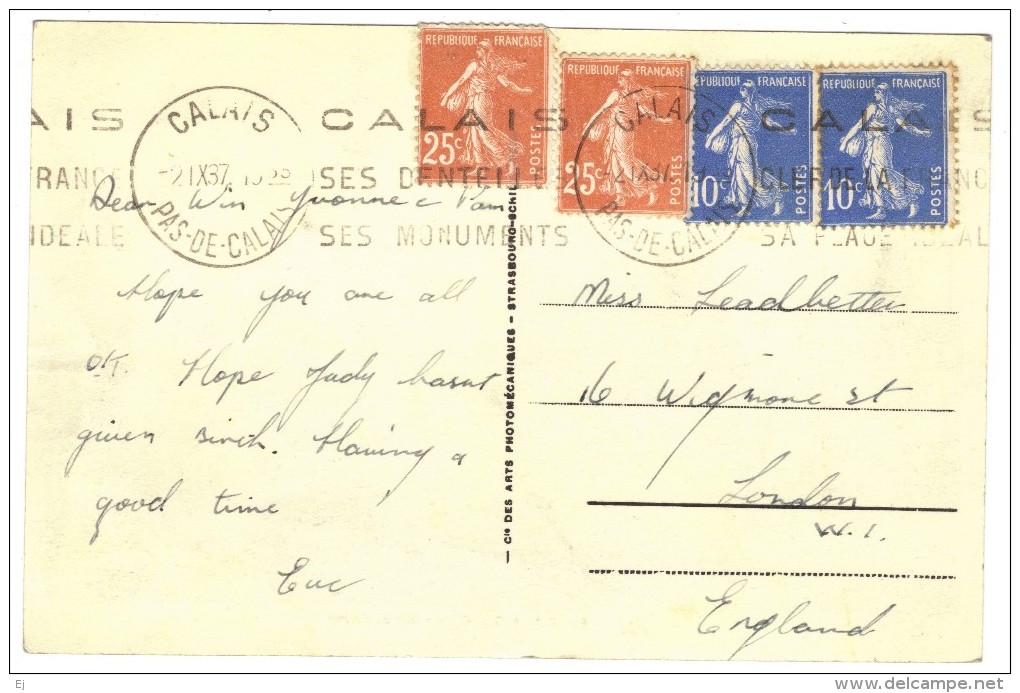 REPUBLIQUE FRANÇAISE
25c
POSTES
REPUBLIQUE FRANÇAISE
25c
POSTES
REPUBLIQUE FRANÇAISE
10c
POSTES
REPUBLIQUE FRANÇAISE
10c
POSTES
AIS CALAIS CALAIS
CALAIS
PAS-DE-CALAIS
CALAIS
PAS-DE-CALAIS
FRANCE SES DENTELLES CLEF DE LA FRANC
IDEALE SES MONUMENTS SA PLAGE IDEAL
Dear Win Yvonne & Pam
Hope you are all
OK. Hope Judy hasnt
given birth. Having a
good time
Eric
— Cie DES ARTS PHOTOMÉCANIQUES - STRASBOURG-SCHIL
Miss Leadbetter
16 Wigmore st
London
W.1.
England
Ej
delcampe.net